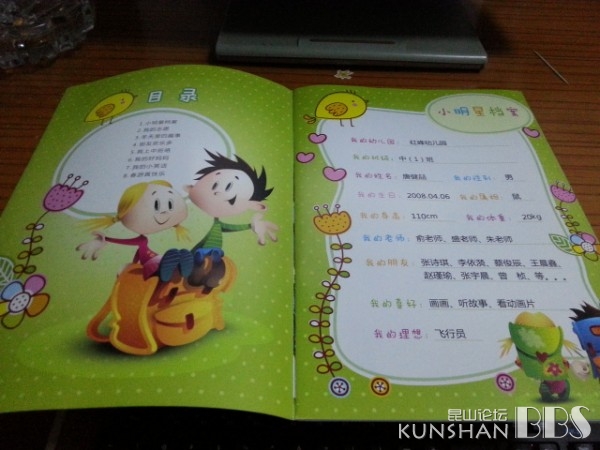 目 录
1.小明星档案
5.我上中班啦
6.我的好妈妈
7.我的小笑话
小明星档案
我的幼儿园：红峰幼儿园
我的班级：中（1）班
我的姓名：唐健喆 我的性别：男
我的生日：2008.04.06 我的属相：鼠
我的身高：110cm 我的体重：20kg
我的老师：俞老师、盛老师、朱老师
我的朋友：张诗琪、李依凝、蔡俊辰、王晨鑫、
赵瑾瑜、张宇晨、曾 桢、等。。。
我的喜好：画画、听故事、看动画片
我的理想：飞行员
昆山论坛
KUNSHAN BBS